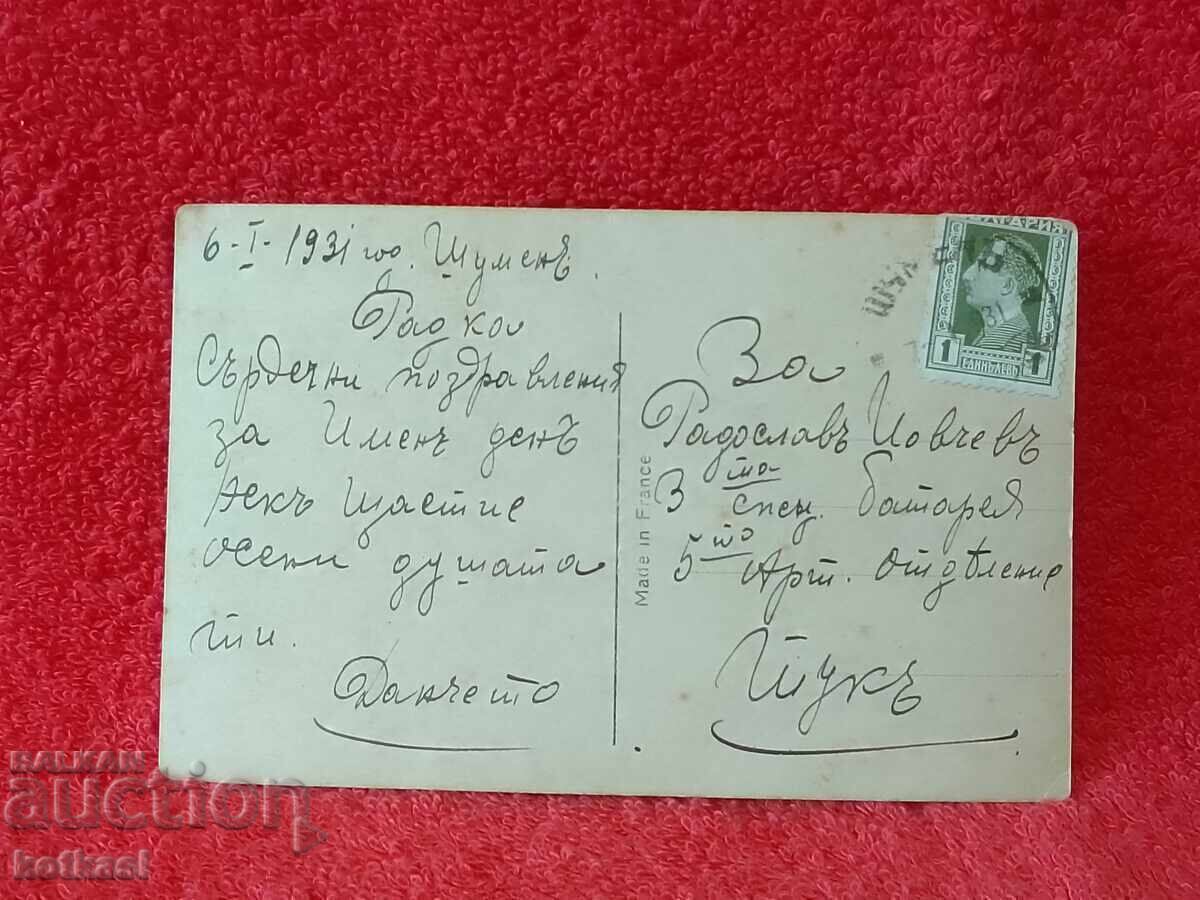 6-I-1931 год. Шуменъ.
Радко
Сърдечни поздравления
за Именъ денъ
Некъ Щастие
осени душата
ти.
Данчето
За
Радославъ Йовчевъ
3 та спец. батарея
5 то Арт. отдѣление
Тукъ
Made in France
1
ЕДИНЪ ЛЕВЪ
1
31
BALKAN
auction
kotkasl